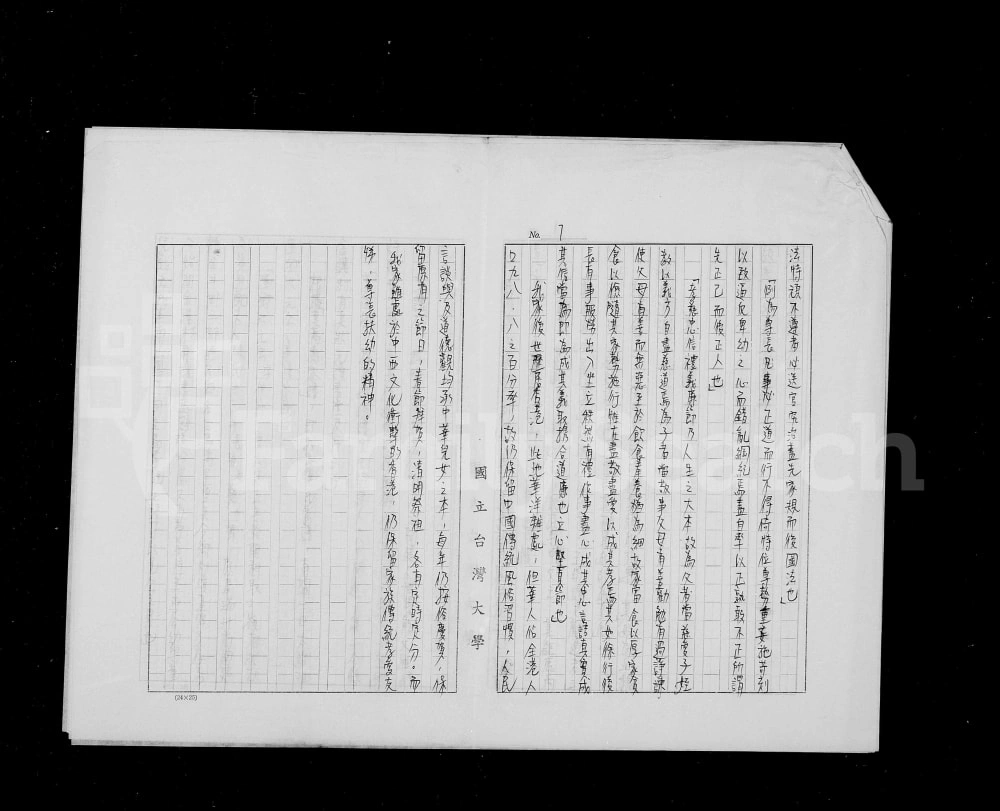 No. 7
法特頑不遵者必送官究治盡先家規而後國法也」
「倘為尊長凡事必正道而行不得倚特位尊勢重妄施苛刻
以致逼反卑幼之心而錯亂綱紀焉盡自率以正孰敢不正所謂
先正己而後正人也」
「孝慈忠信禮義廉節乃人生之大本故為父者當慈愛子姪
教以義方自盡慈道焉為子者當敬事父母有善勸勉有過諫
使父母有善而無惡至於飲食羞養猶為細故家富食以厚家貧
食以儉隨其家勢施行惟在盡敬盡愛以成其孝焉其如條行後
長有事服勞出入坐立秩然有禮作事盡心成其忠言語真實成
其信當為即為成其義取捨合道廉也立心堅貞節也」
我家後世歷居香港,此地華洋雜處,但華人佔全港人
口九八.八之百分率,故仍保留中國傳統風俗習慣,人民
國立台灣大學
言談與及道德觀均承中華兒女之本,每年仍按俗慶賀,保
留原有之節日,春節拜賀,清明祭祖,各有定時定分。而
我家雖處於中西文化衝擊的香港,仍保留家族傳統孝愛友
悌,尊長扶幼的精神。
(24×25)